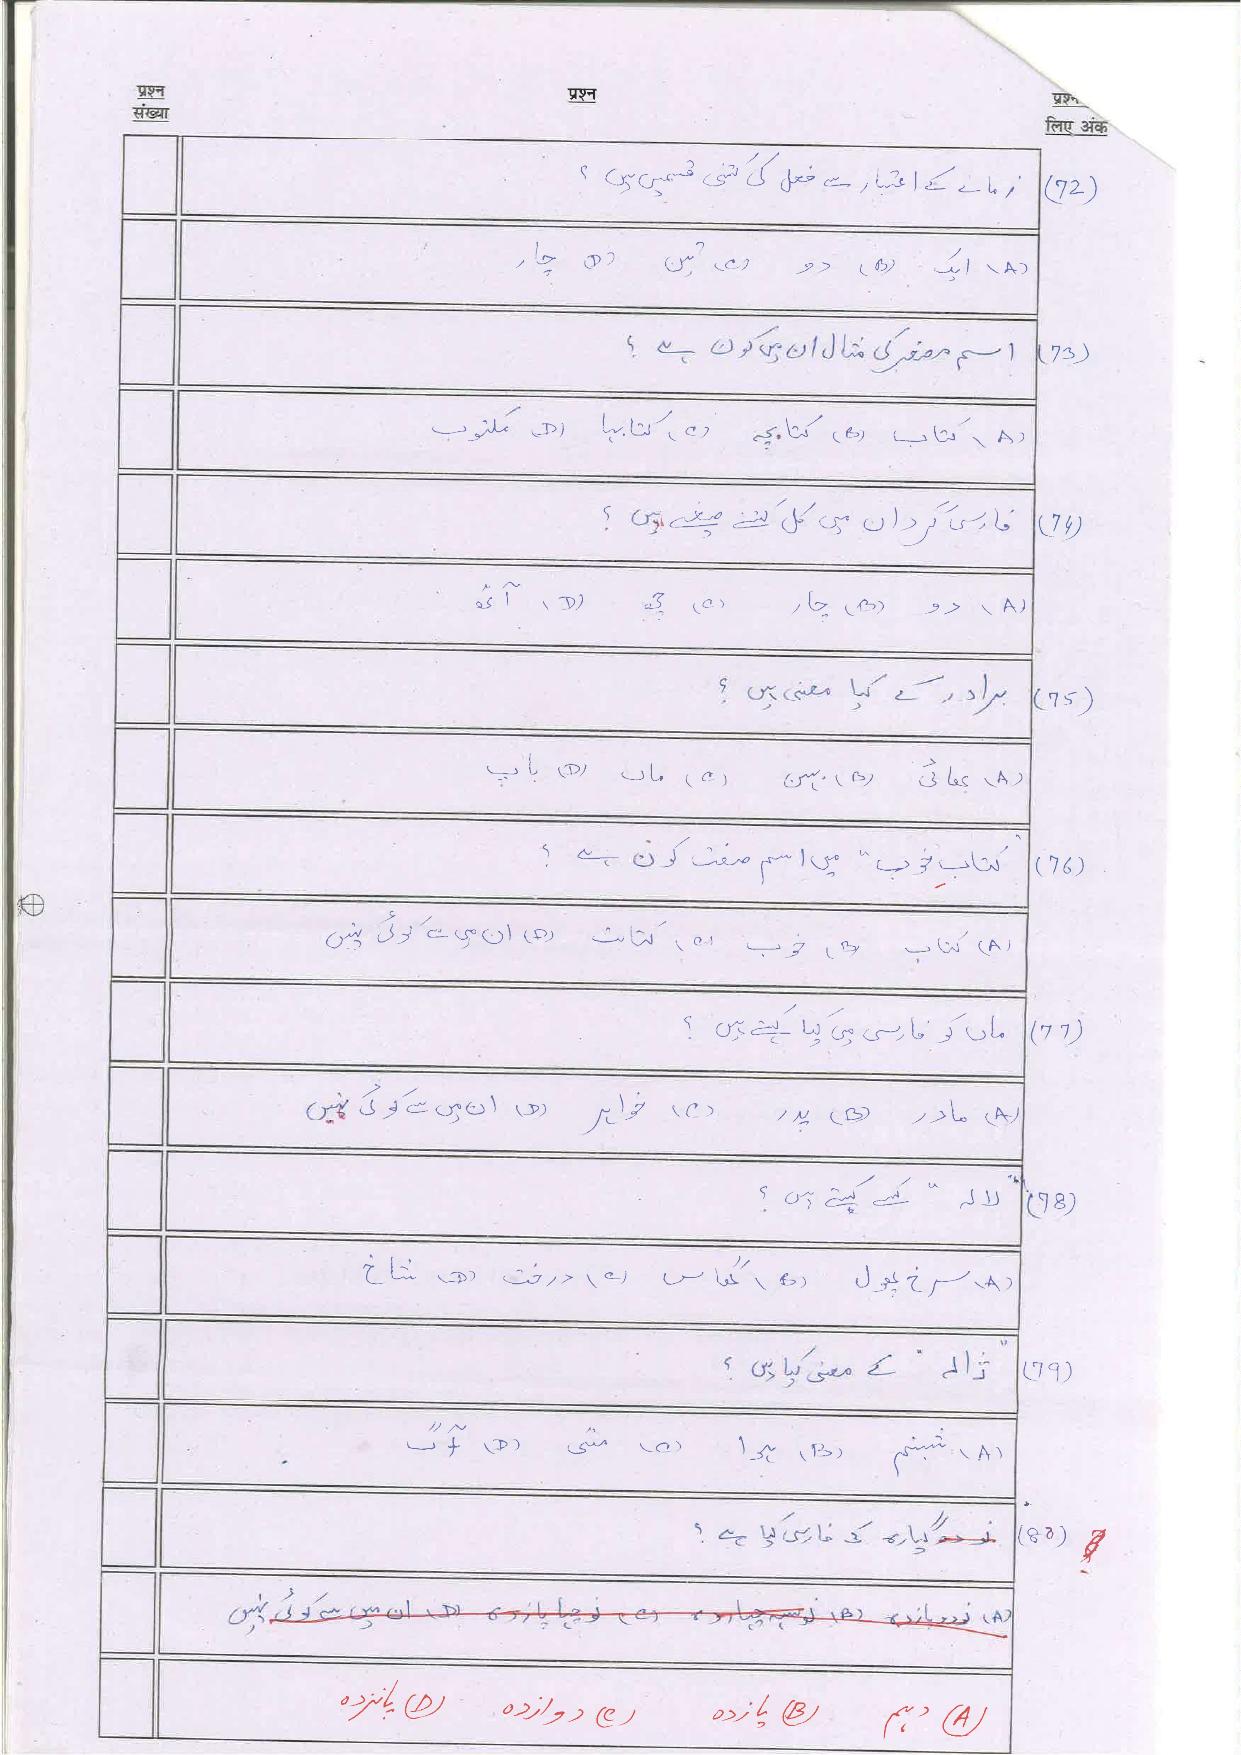 प्रश्न संख्या
प्रश्न
लिए अंक
(72) زمانے کے اعتبار سے فعل کی کتنی قسمیں ہیں ؟
(A) ایک (B) دو (C) تین (D) چار
(73) اسم مصغر کی مثال ان میں کون ہے ؟
(A) کتاب (B) کتابچہ (C) کتابہا (D) مکتوب
(74) فارسی گردان میں کل کتنے صیغے ہیں ؟
(A) دو (B) چار (C) چھ (D) آٹھ
(75) برادر کے کیا معنی ہیں ؟
(A) بھائی (B) بہن (C) ماں (D) باپ
(76) "کتابِ خوب" میں اسم صفت کون ہے ؟
(A) کتاب (B) خوب (C) کتابت (D) ان میں سے کوئی نہیں
(77) ماں کو فارسی میں کیا کہتے ہیں ؟
(A) مادر (B) پدر (C) خواہر (D) ان میں سے کوئی نہیں
(78) "لالہ" کسے کہتے ہیں ؟
(A) سرخ پھول (B) گھاس (C) درخت (D) شاخ
(79) "ژالہ" کے معنی کیا ہیں ؟
(A) شبنم (B) ہوا (C) مٹی (D) آگ
(80) گیارہ کی فارسی کیا ہے ؟
(A) (B) (C) (D) ان میں سے کوئی نہیں
(A) دہم (B) یازدہ (C) دوازدہ (D) پانزدہ